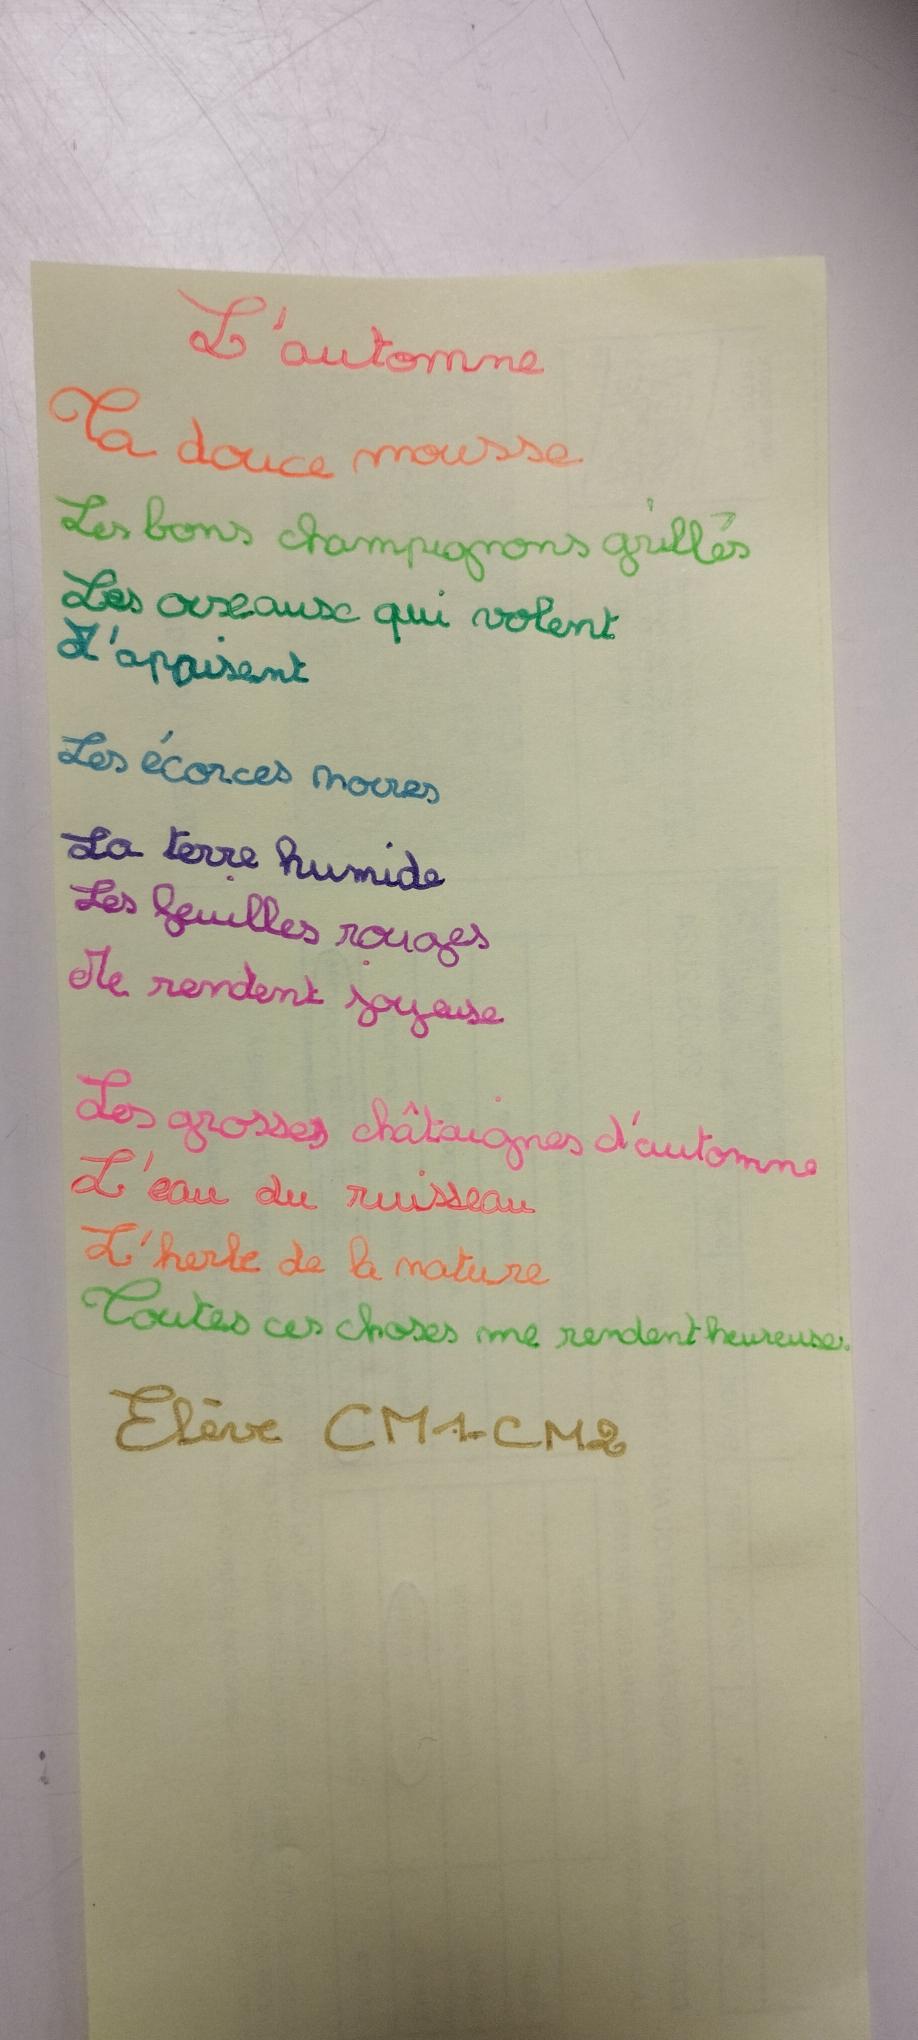 L'automne
Ta douce mousse
Les bons champignons grillés
Les oiseaux qui volent
T'apaisent
Les écorces noires
La terre humide
Les feuilles rouges
Me rendent joyeuse
Les grosses châtaignes d'automne
L'eau du ruisseau
L'herbe de la nature
Toutes ces choses me rendent heureuse.
Elève CM1-CM2